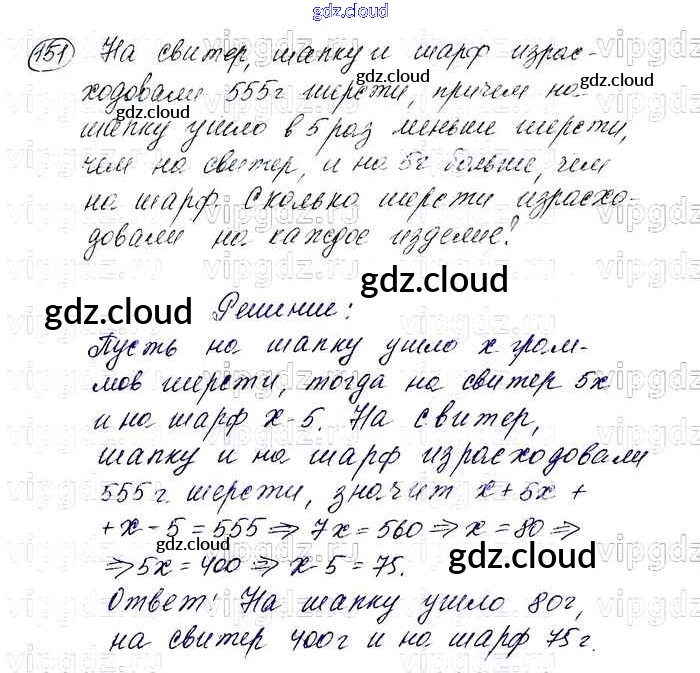 gdz.cloud
151 На свитер, шапку и шарф израс-
ходовали 555г шерсти, причем на
шапку ушло в 5 раз меньше шерсти,
чем на свитер, и на 5г больше, чем
на шарф. Сколько шерсти израсхо-
довали на каждое изделие?
Решение:
Пусть на шапку ушло x грам-
мов шерсти, тогда на свитер 5x
и на шарф x-5. На свитер,
шапку и на шарф израсходовали
555 г. шерсти, значит x+5x+
+x-5=555 ⇒ 7x=560 ⇒ x=80 ⇒
⇒ 5x=400 ⇒ x-5=75.
Ответ: На шапку ушло 80г,
на свитер 400г и на шарф 75г.
gdz.cloud
gdz.cloud
gdz.cloud
gdz.cloud
gdz.cloud
gdz.cloud
gdz.cloud